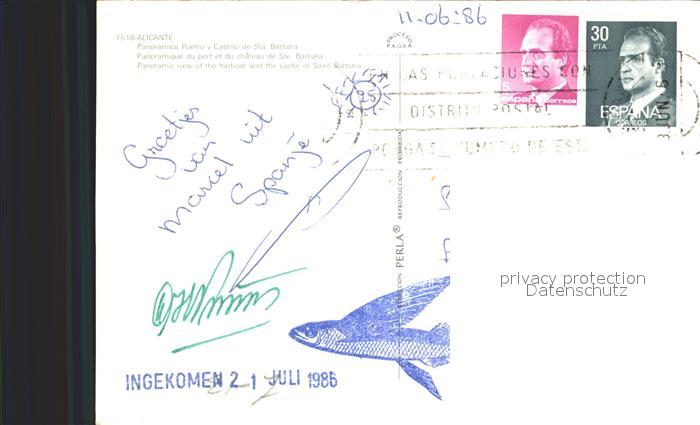 11-06-86
1518-ALICANTE
Panorámica Puerto y Castillo de Sta. Bárbara
Panoramique du port et du château de Ste. Bárbara
Panoramic view of the harbour and the castle of Saint Barbara
PROCESO
P.A.G.S.A.
5
España correos
30
PTA
ESPAÑA
CORREOS
LAS POBLACIONES CON
DISTRITO POSTAL
PONGA EL NUMERO DE ESTE
JUN
Groetjes
van
marcel uit
Spanje
PERLA® REPRODUCCION PROHIBIDA
privacy protection
Datenschutz
INGEKOMEN 21 JULI 1986